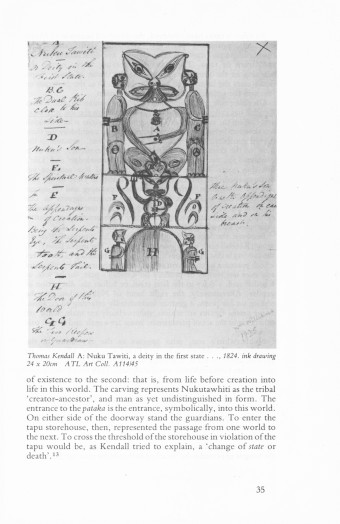 A
Nuku Tawiti
a Deity in the
first State.
B.C
The Dual
close to his
side—
D
Nuku's Son—
F.
The Spiritual Waters
E
The appendages
of Creation.
Being the Serpents
Eye, The Serpents
tooth, and the
Serpents Tail.
H
The Door of this
World
G G
The Two
or Guardians
B
A
B
C
C
F
E
D
E
F
G
H
G
Nuku's Son
with appendages
of creation on each
side and on his
breast.
Thomas Kendall A: Nuku Tawiti, a deity in the first state . . ., 1824. ink drawing
24 x 20cm ATL Art Coll. A114/45
of existence to the second: that is, from life before creation into
life in this world. The carving represents Nukutawhiti as the tribal
'creator-ancestor', and man as yet undistinguished in form. The
entrance to the pataka is the entrance, symbolically, into this world.
On either side of the doorway stand the guardians. To enter the
tapu storehouse, then, represented the passage from one world to
the next. To cross the threshold of the storehouse in violation of the
tapu would be, as Kendall tried to explain, a 'change of state or
death'.¹³
35